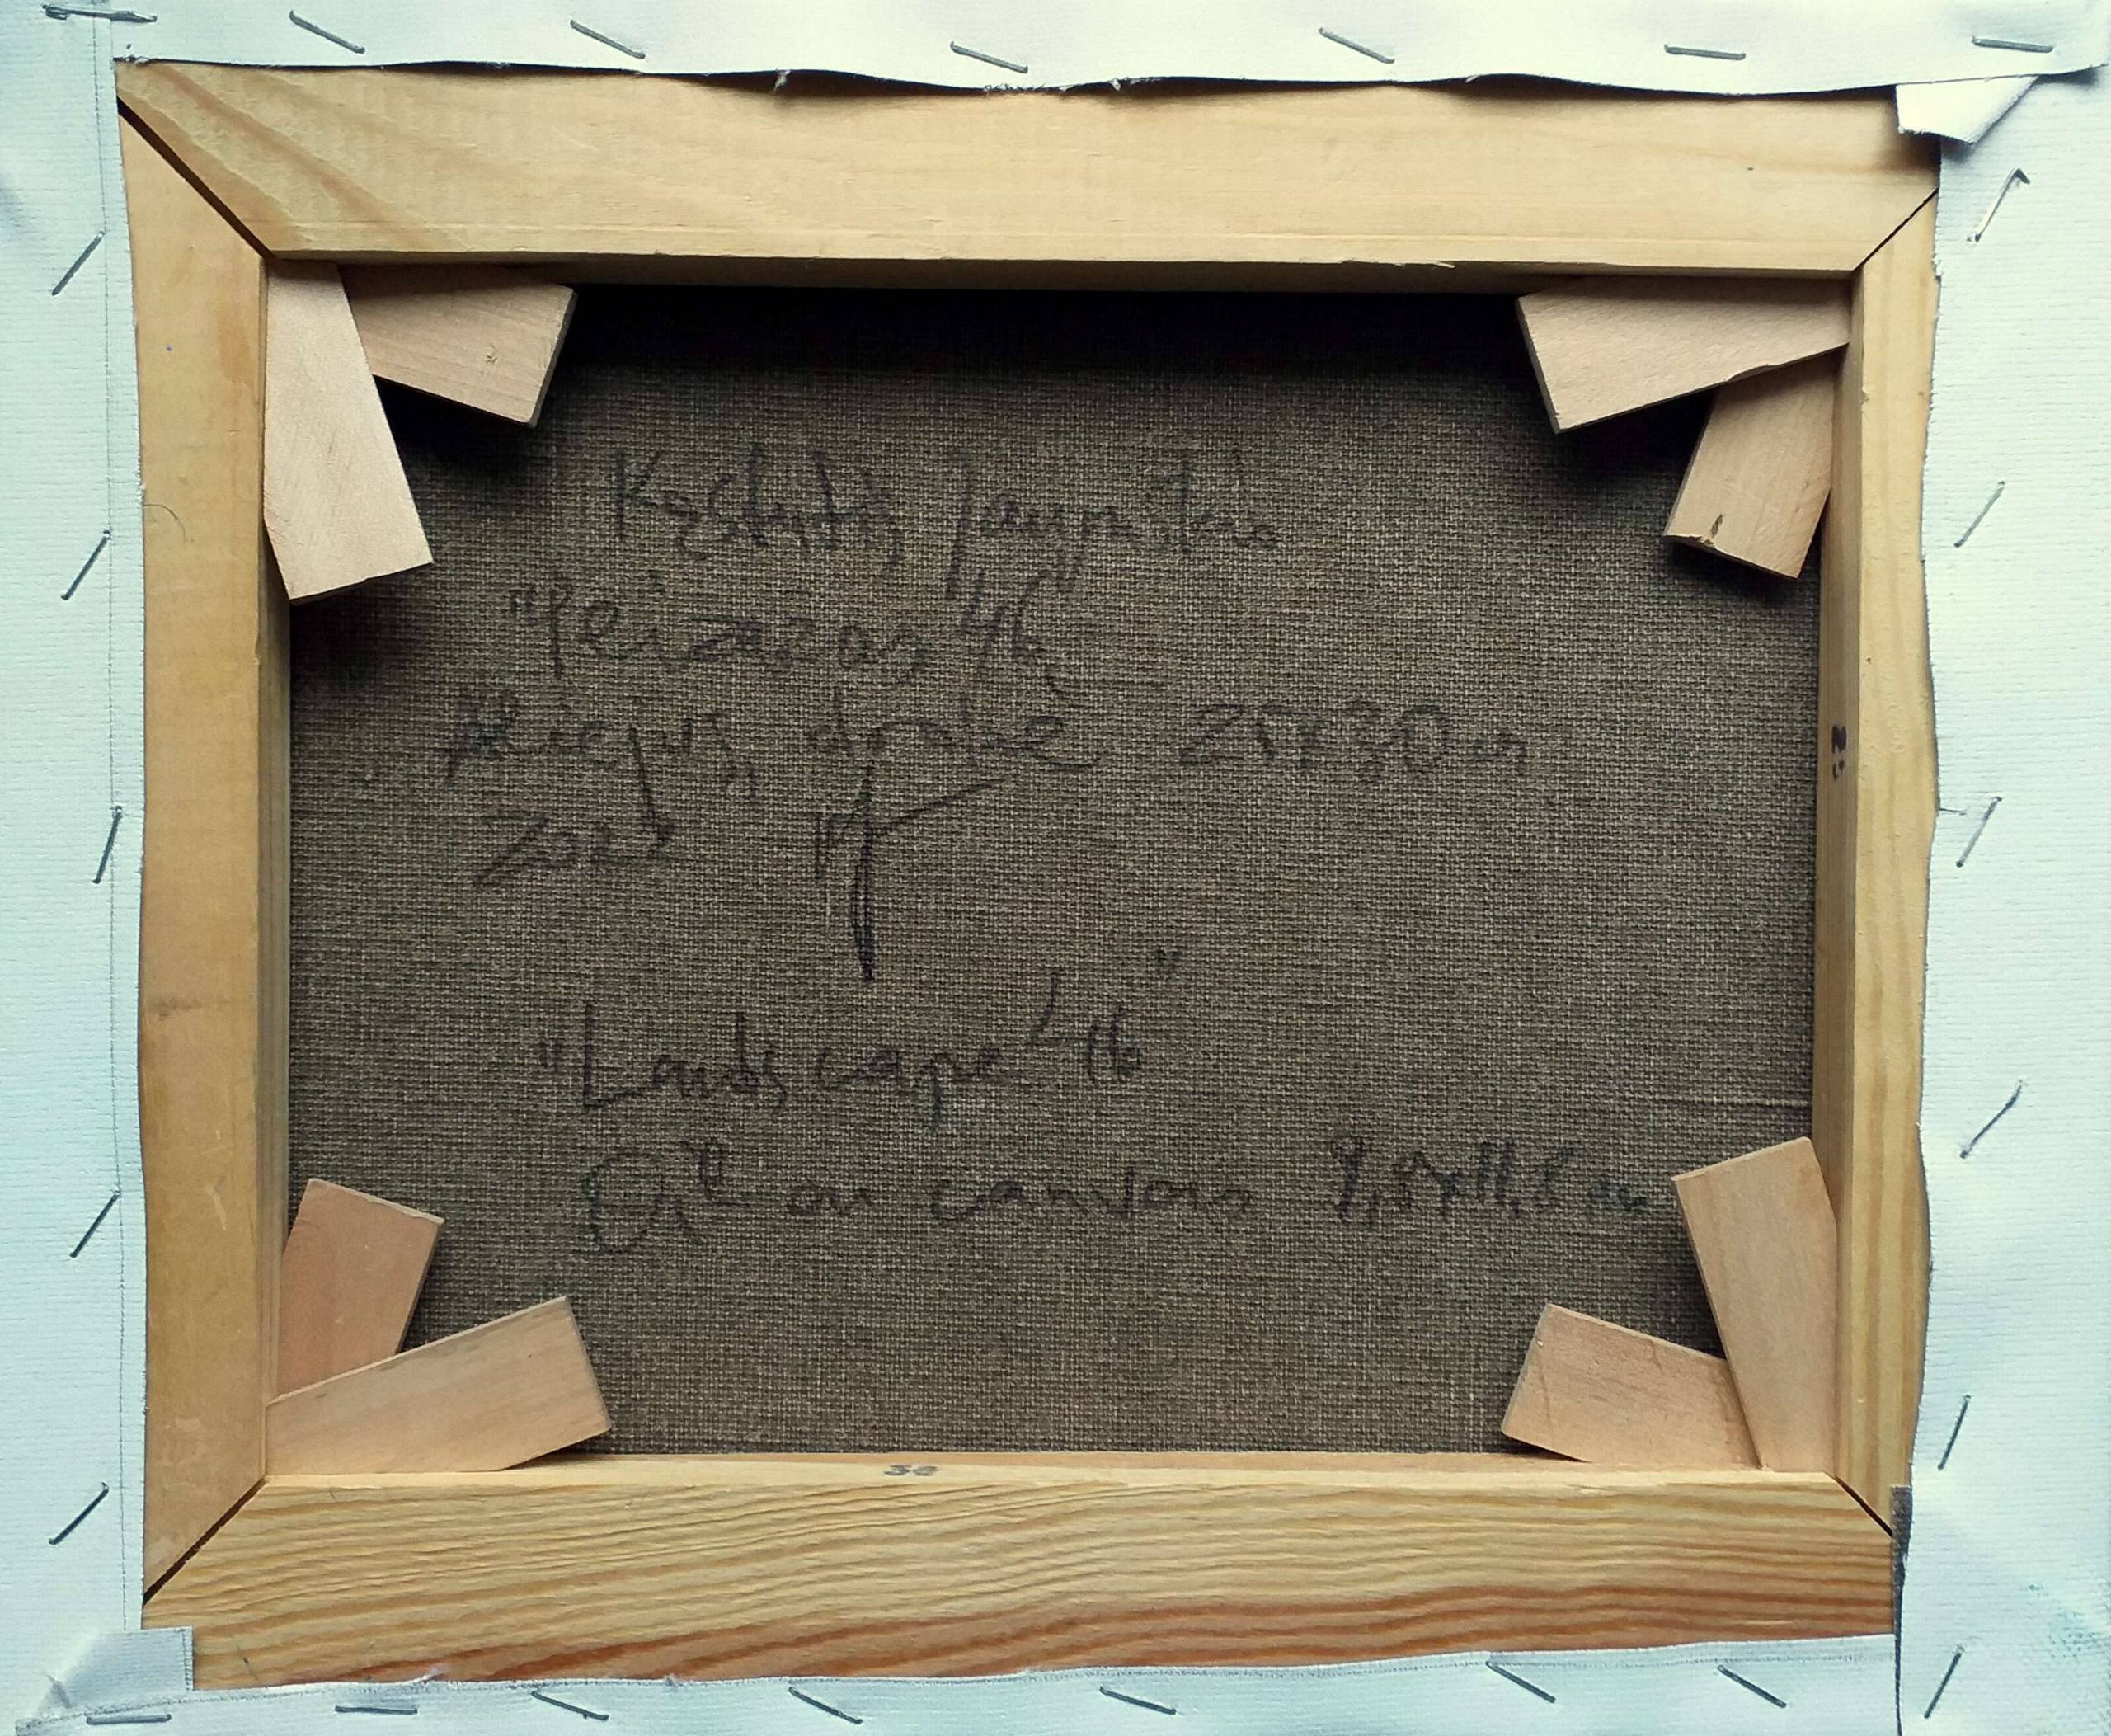 Kęstutis Jauniškis
"Peizažas 46"
Aliejus, drobė 25x30 cm
25
"Landscape 46"
Oil on canvas
30